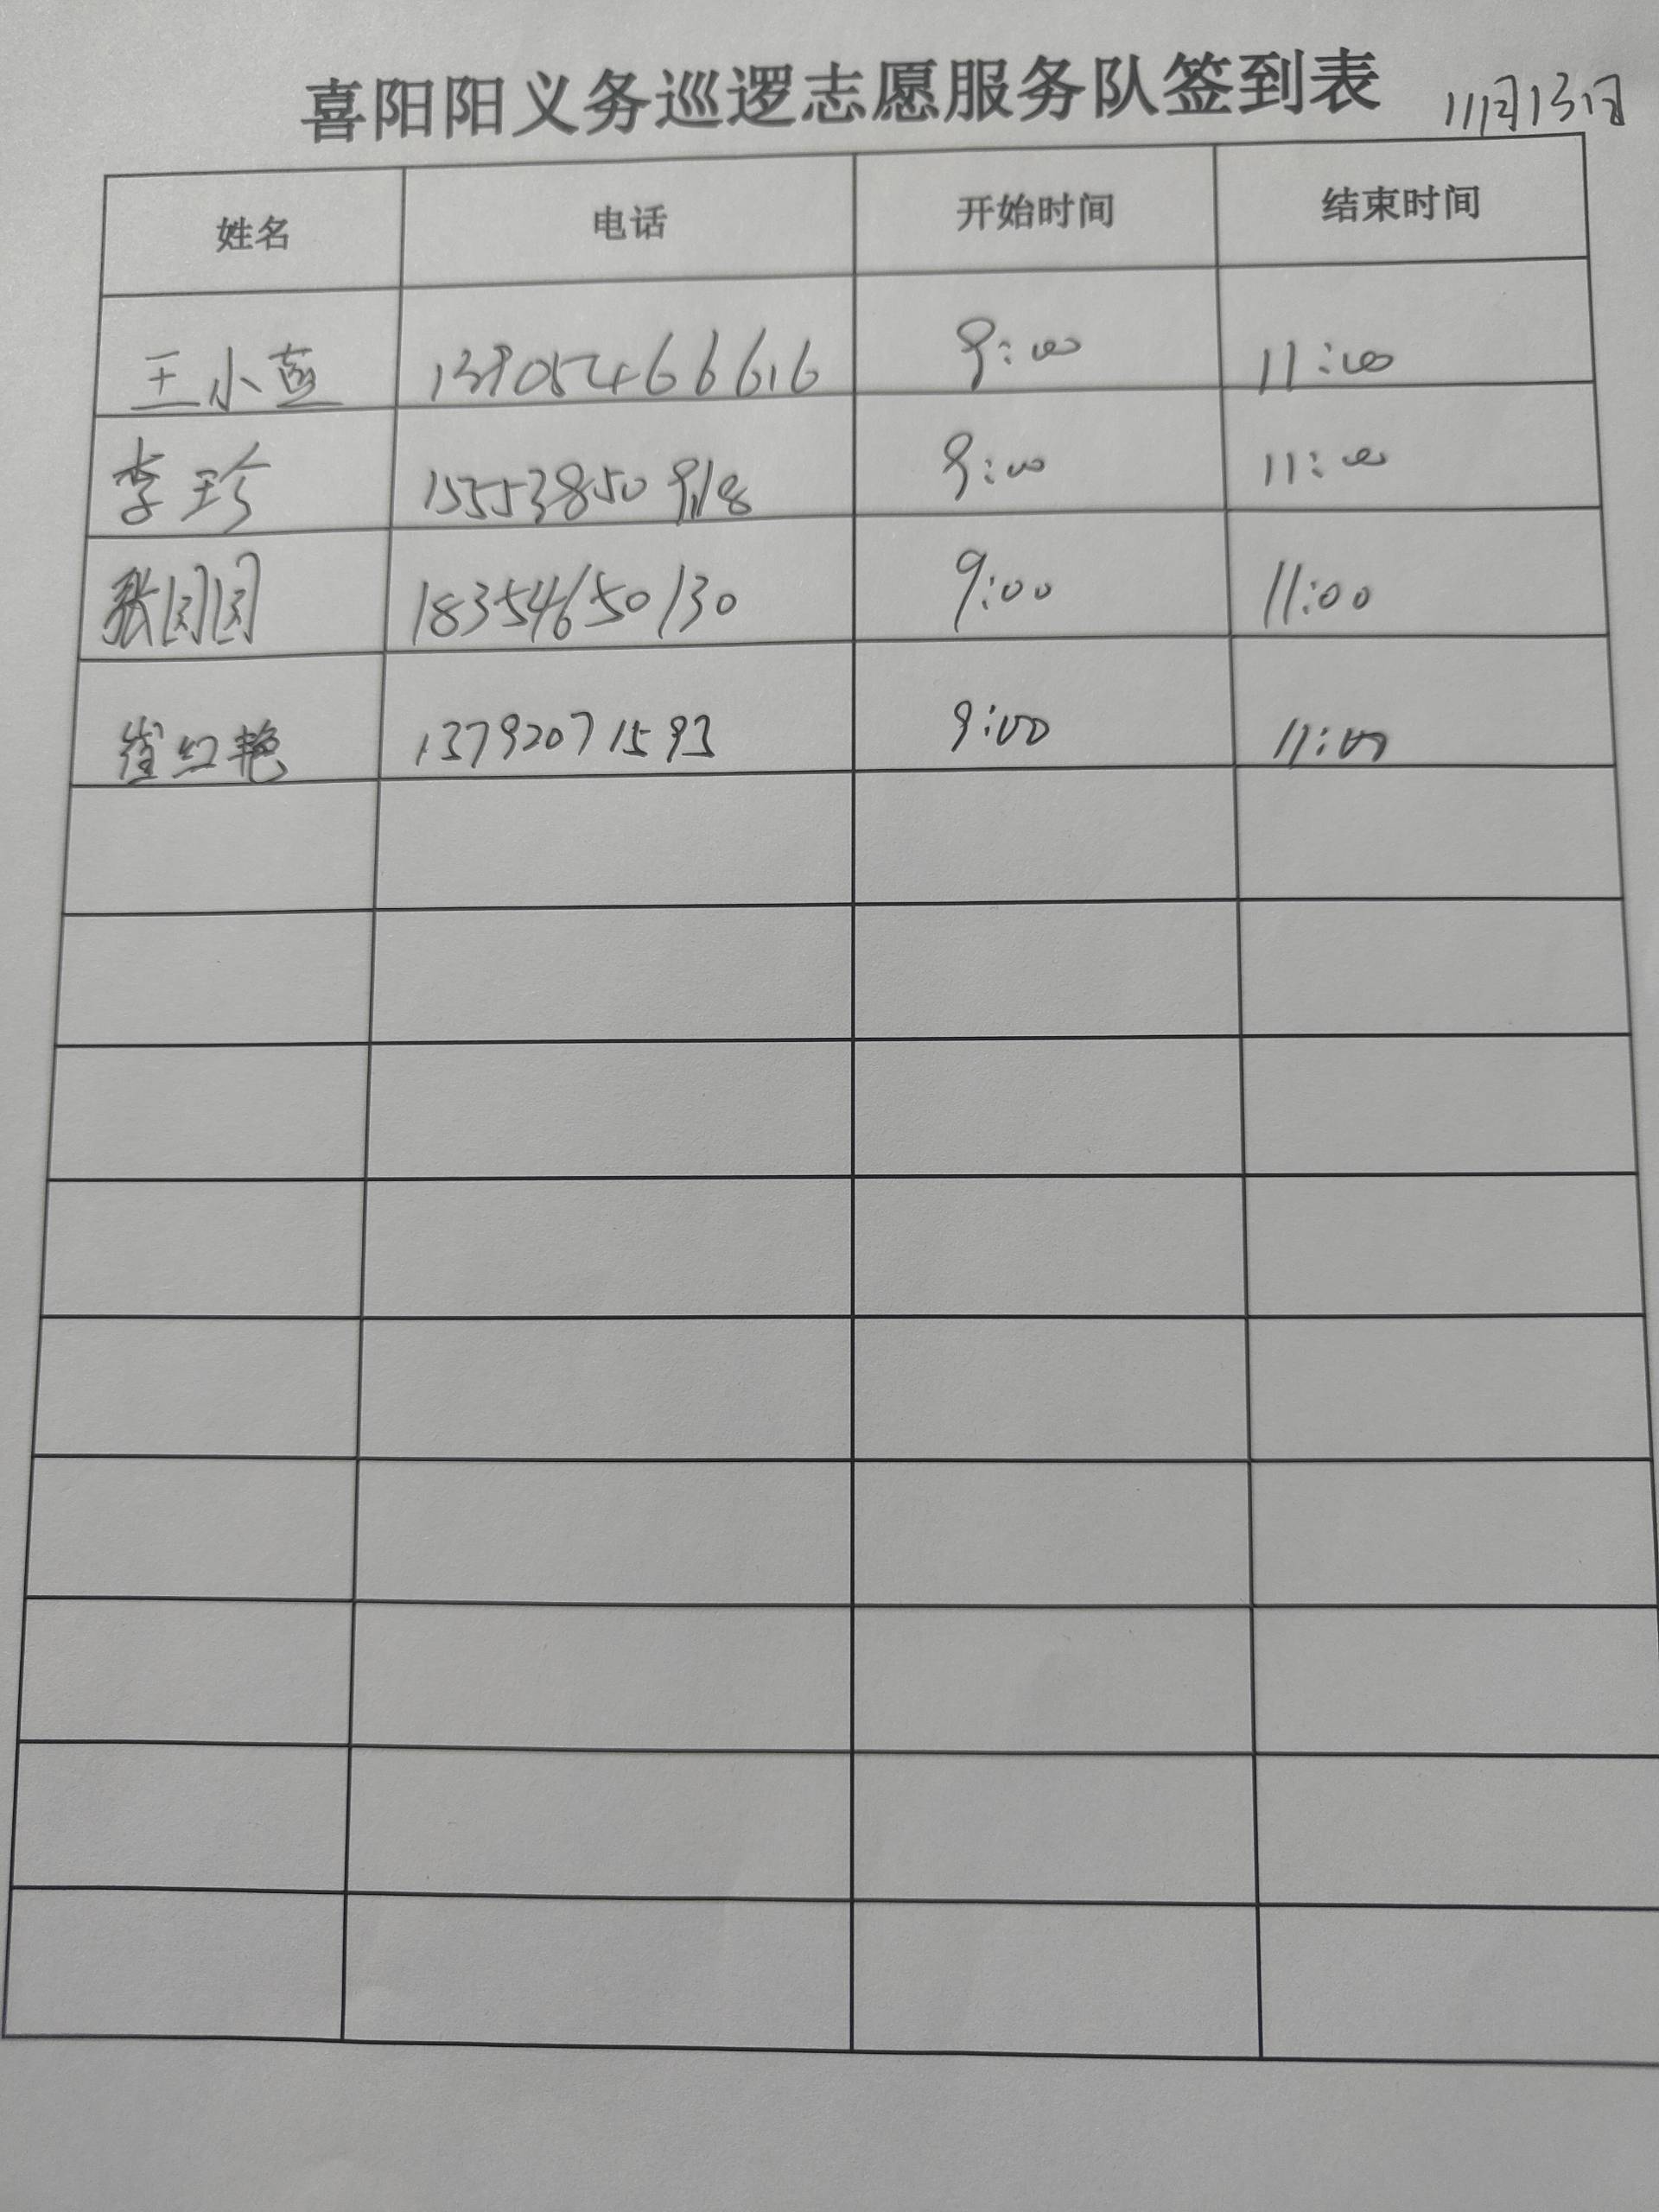 喜阳阳义务巡逻志愿服务队签到表 11月13日
姓名 电话 开始时间 结束时间
王小燕 13905466616 9:00 11:00
李珍 15553850918 9:00 11:00
张园园 18354650130 9:00 11:00
崔红艳 13792071593 9:00 11:00